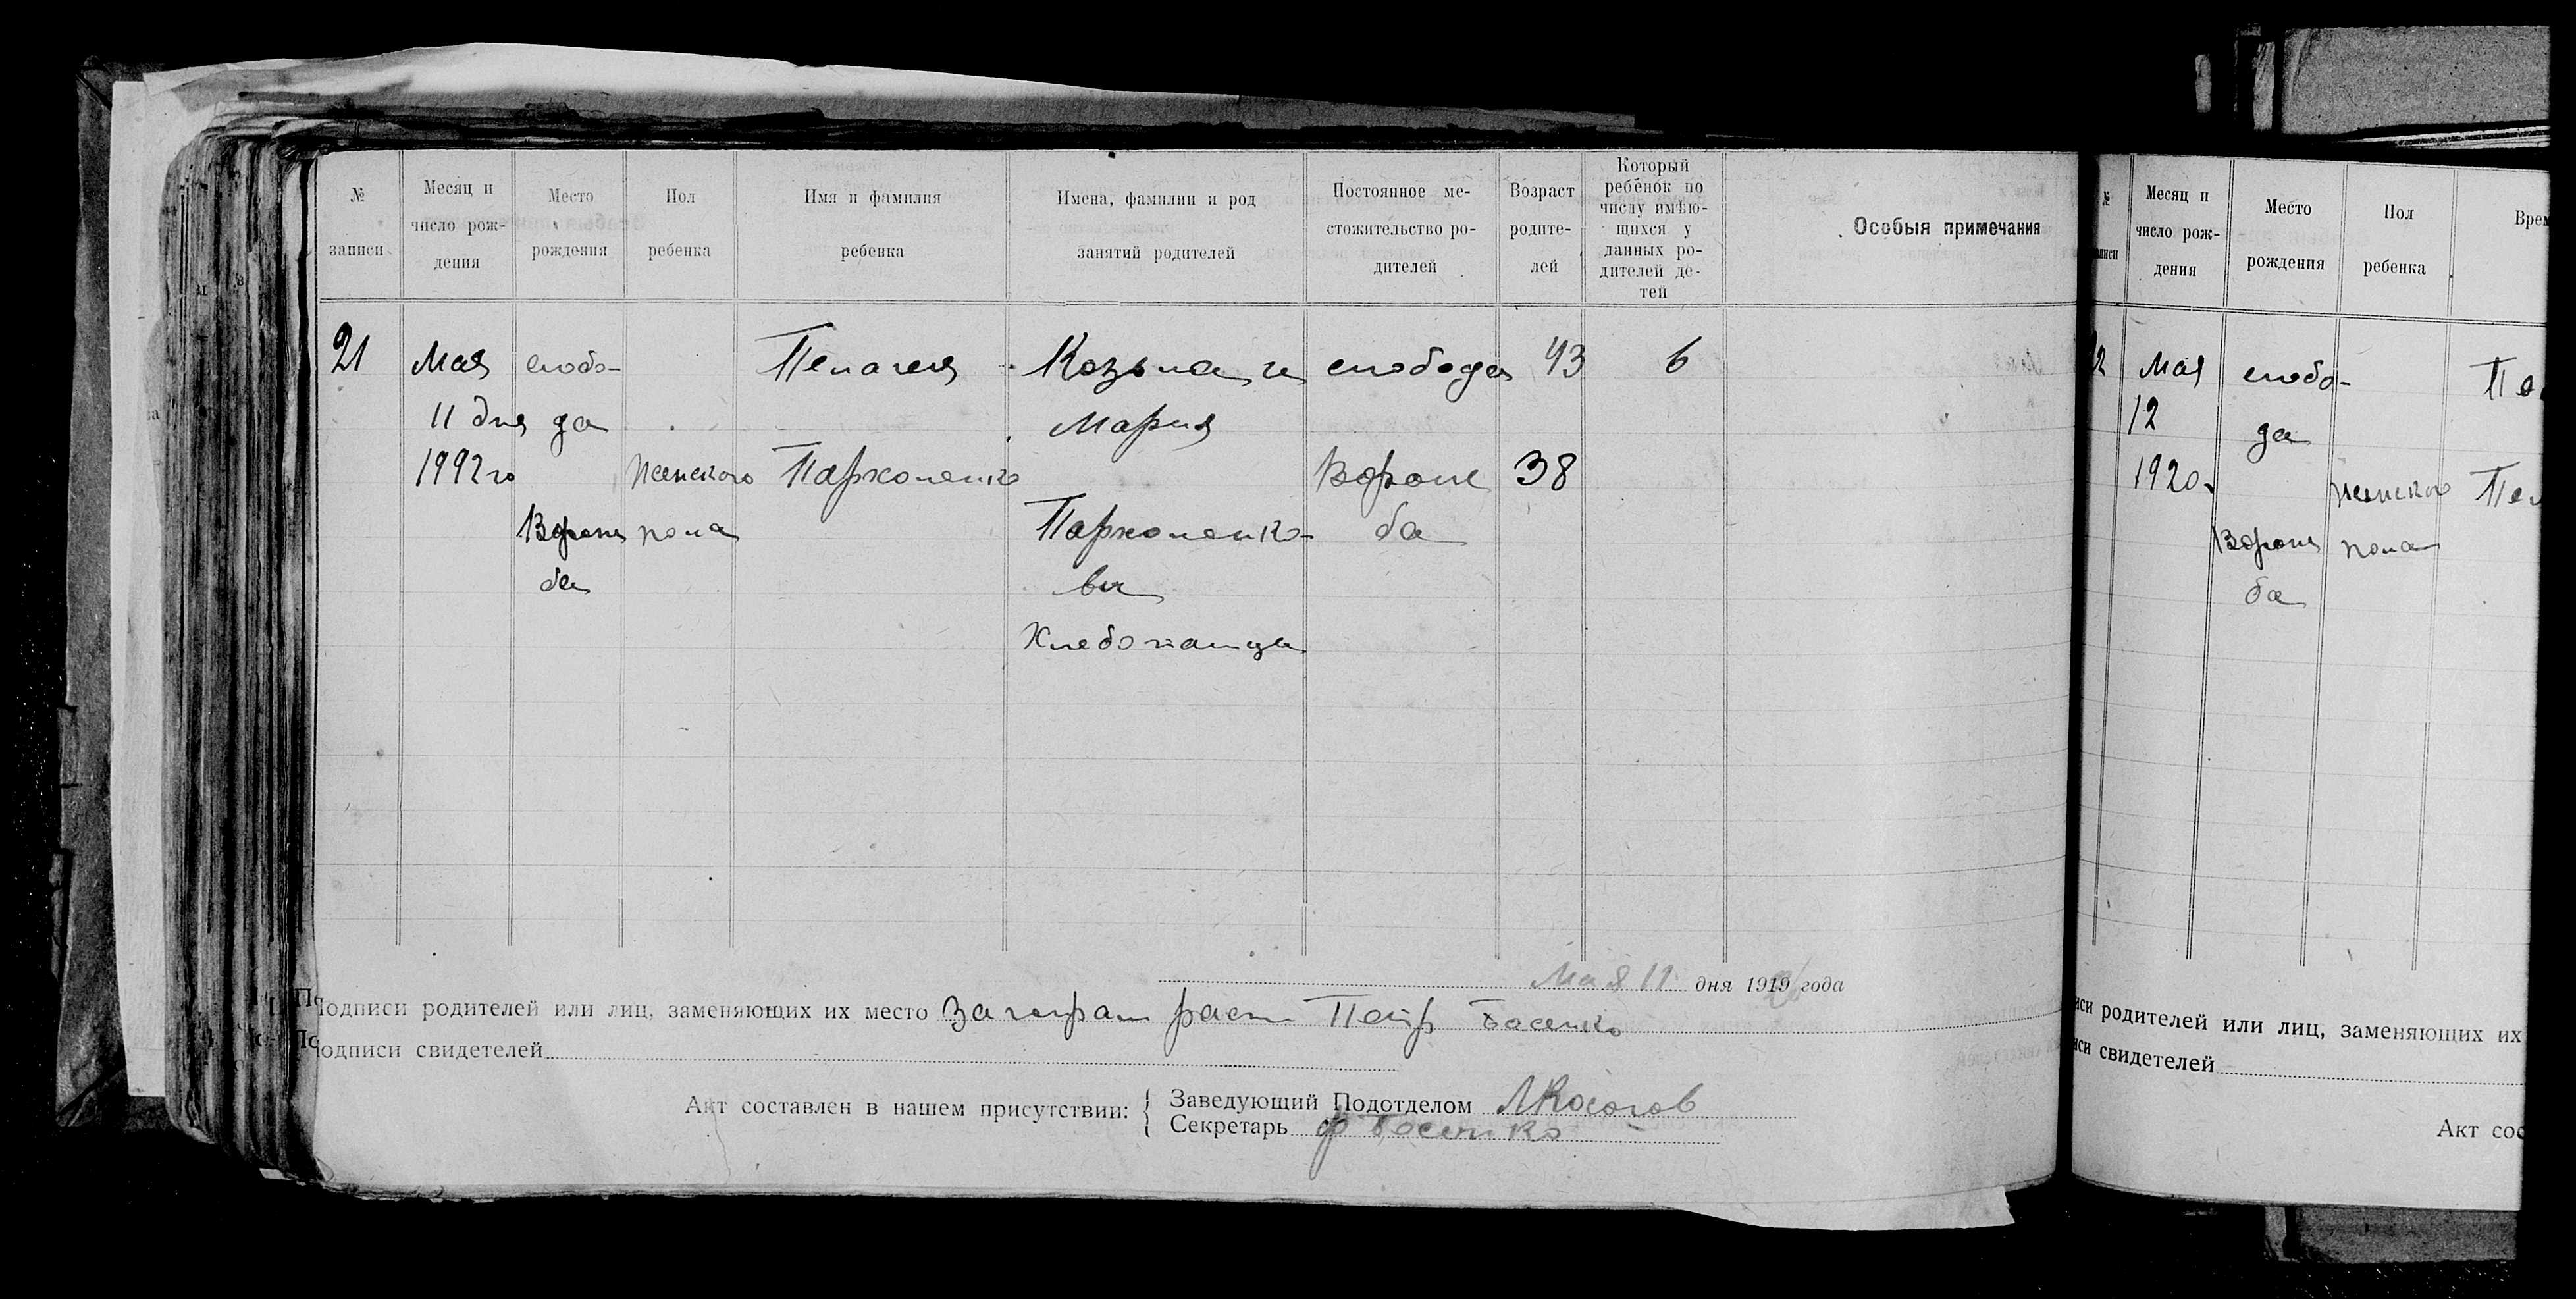 № записи
Месяц и число рождения
Место рождения
Пол ребенка
Имя и фамилия ребенка
Имена, фамилии и род занятий родителей
Постоянное местожительство родителей
Возраст родителей
Который ребенок по числу имѣющихся у данных родителей детей
Особыя примечания
21
Мая
11 дня
1992 го
слобо-
да
Воронь
ба
Женского
пола
Пелагея
Пархоменко
Козьма и
Мария
Пархоменко-
вы
Хлебопашцы
слобода
Вороне
ба
43
38
6
Мая 11 дня 1919 года
Подписи родителей или лиц, заменяющих их место Петр Босенко
Подписи свидетелей
Акт составлен в нашем присутствии:
Заведующий Подотделом
Секретарь Ф Босенко
№
Месяц и число рождения
Место рождения
Пол ребенка
Мая
12
1920.
слобо-
да
Воронь
ба
женского
пола
родителей или лиц, заменяющих их
свидетелей
Акт